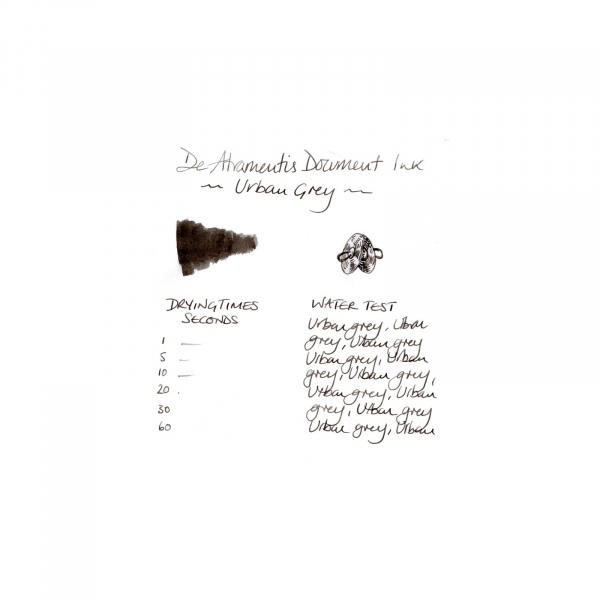 De Atramentis Document Ink
~ Urban Grey ~
DRYINGTIMES
SECONDS
1
5
10
20
30
60
WATER TEST
Urban grey, Urban
grey, Urban grey
Urban grey, Urban
grey, Urban grey,
Urban grey, Urban
grey, Urban grey
Urban grey, Urban